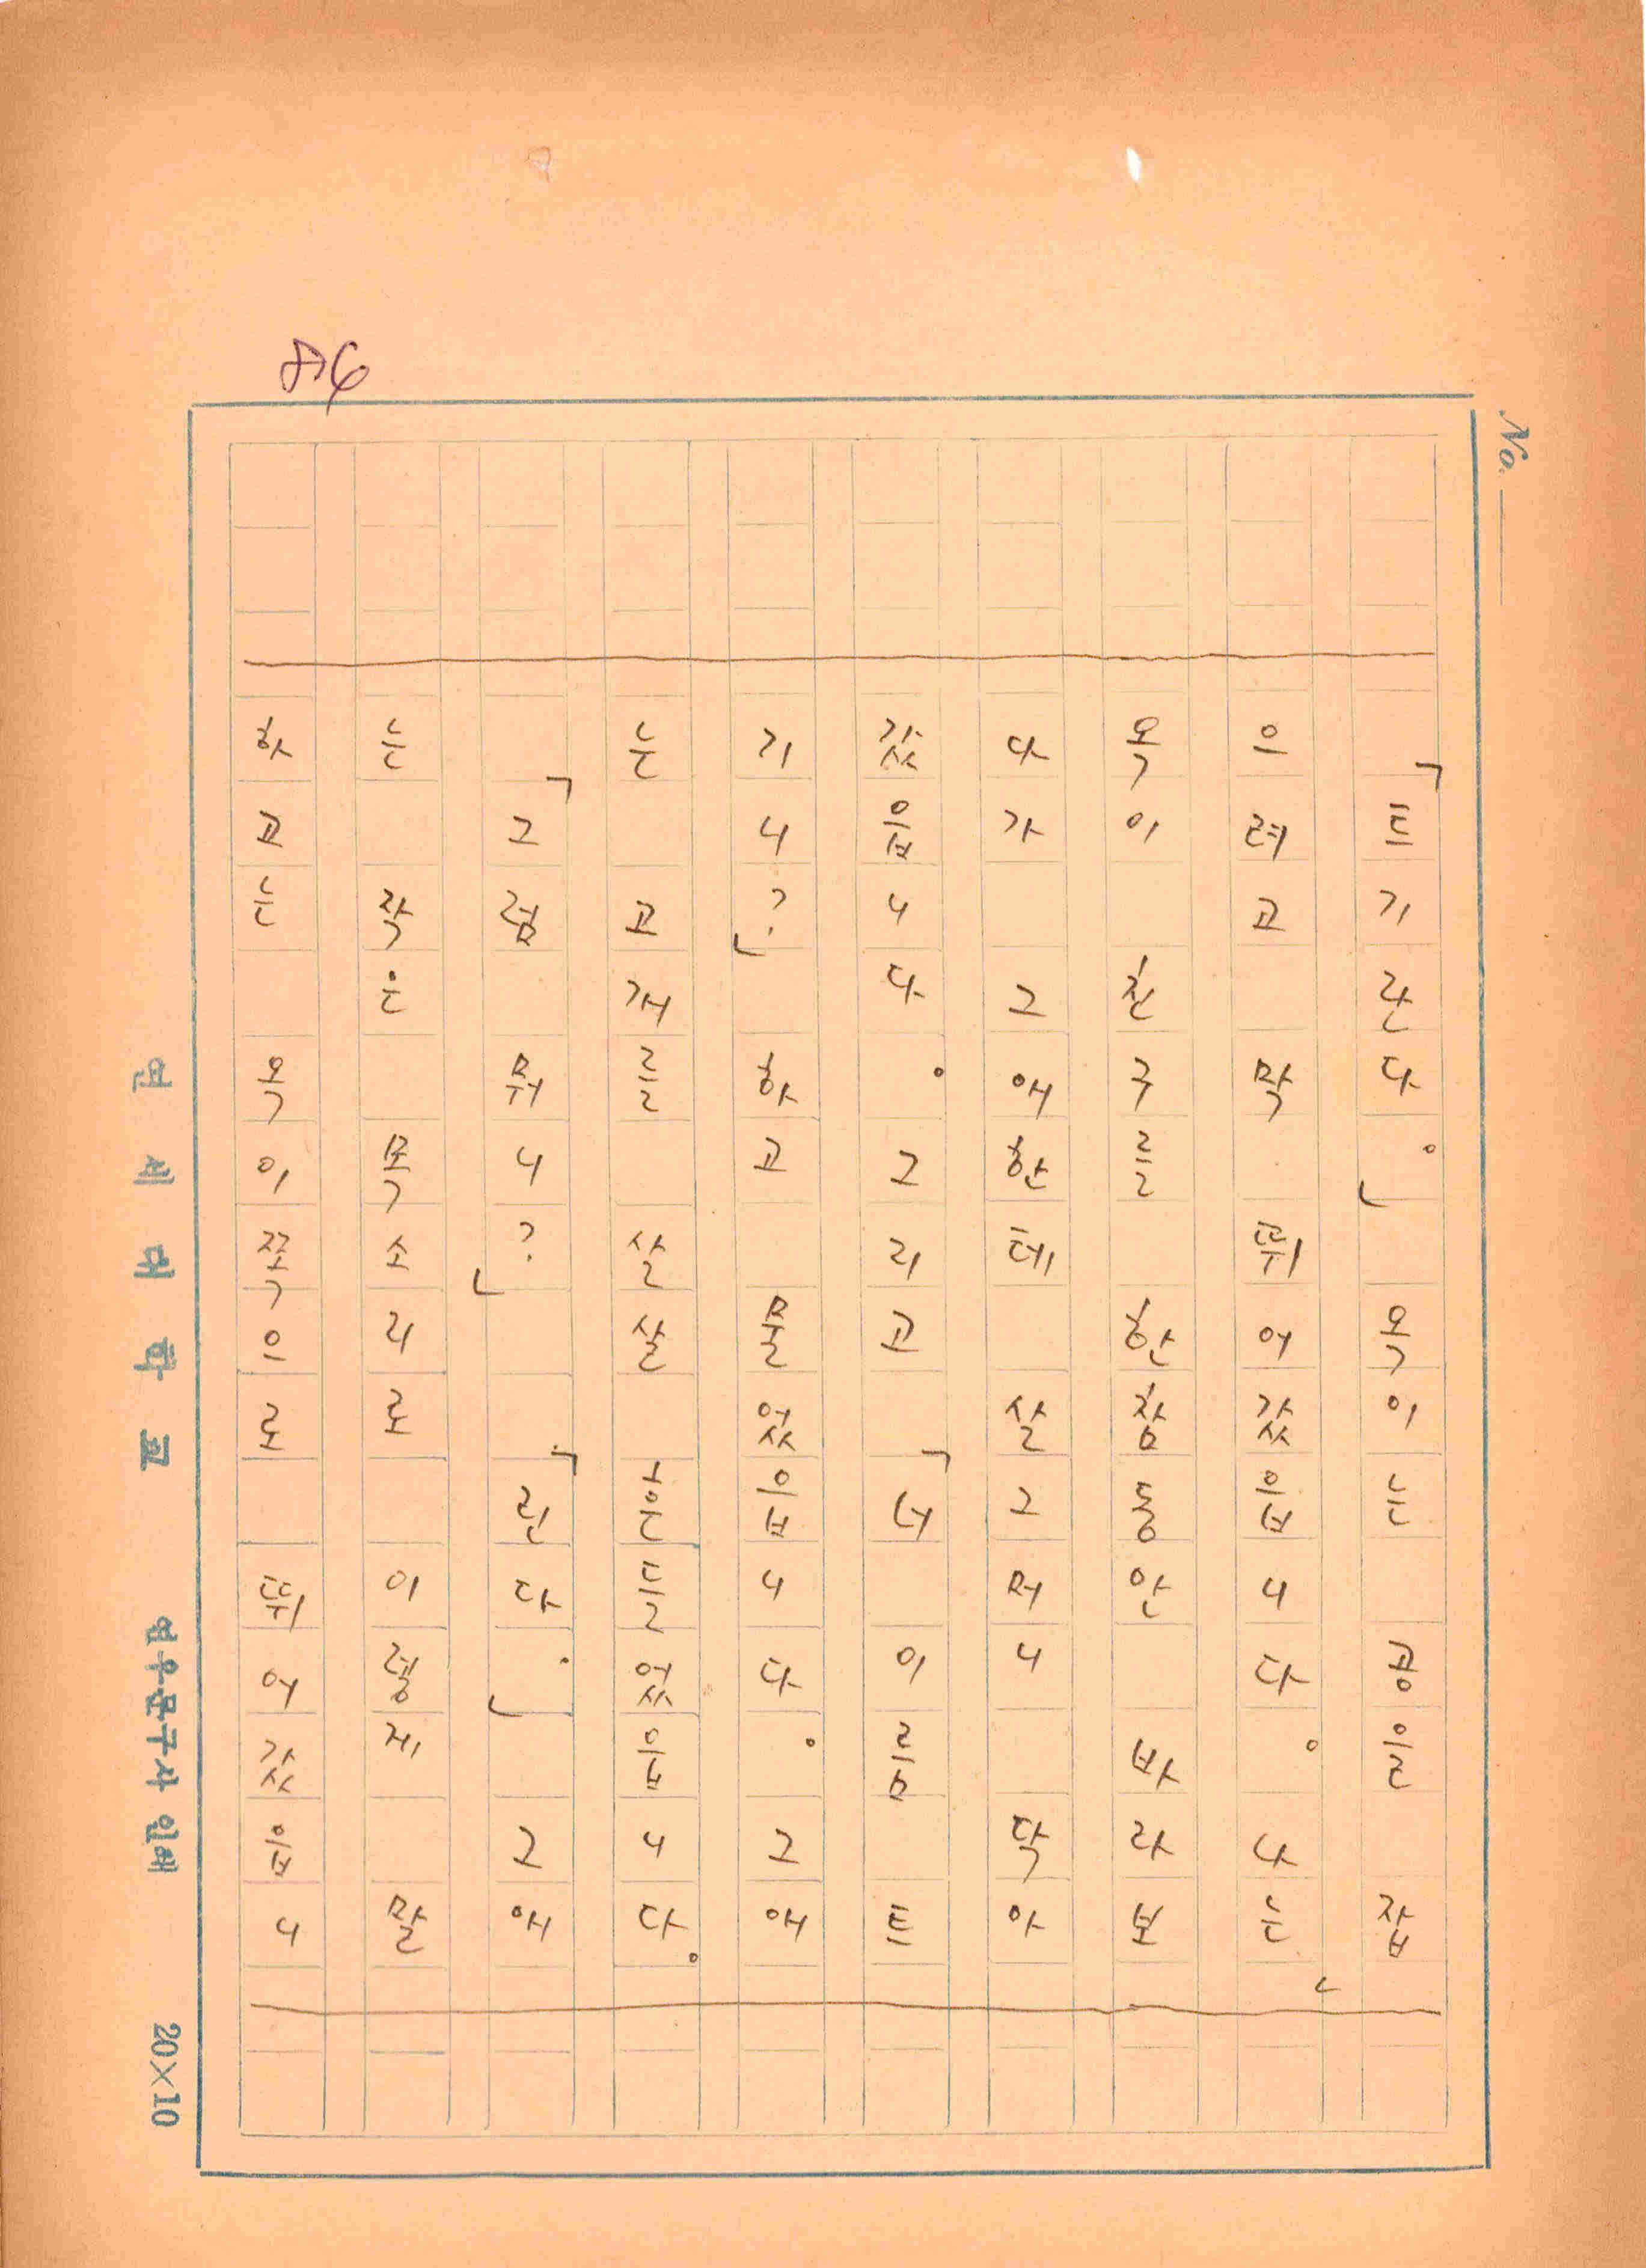 No.
「트기란다。」 욱이는 공을 잡
으려고 막 뛰어갔읍니다。나는
욱이 친구를 한참동안 바라보
다가 그애한테 살그머니 닥아
갔읍니다。그리고 「너 이름 트
기니?」 하고 물었읍니다。그애
는 고개를 살살 흔들었읍니다。
「그럼 뭐니?」 「린다.」 그애
는 작은 목소리로 이렇게 말
하고는 욱이쪽으로 뛰어갔읍니
86
연세대학교 연우문구사 인쇄 20×10